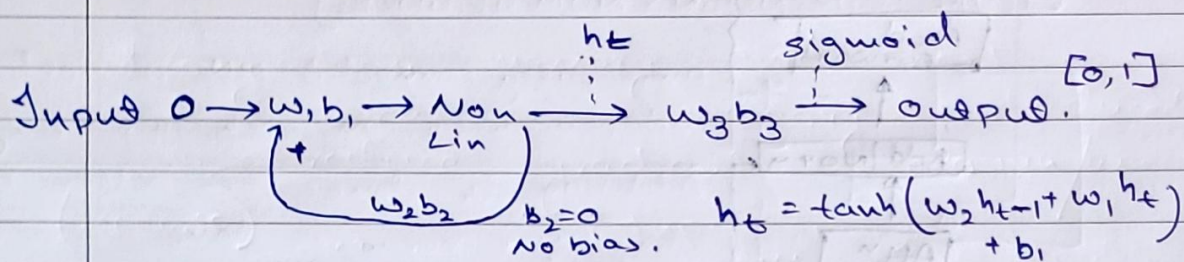 ht
sigmoid
[0,1]
Input O → w₁b₁ → Non Lin → w₃b₃ → output.
+
w₂b₂
b₂=0
No bias.
ht = tanh(w₂ht-1 + w₁ht)
+ b₁